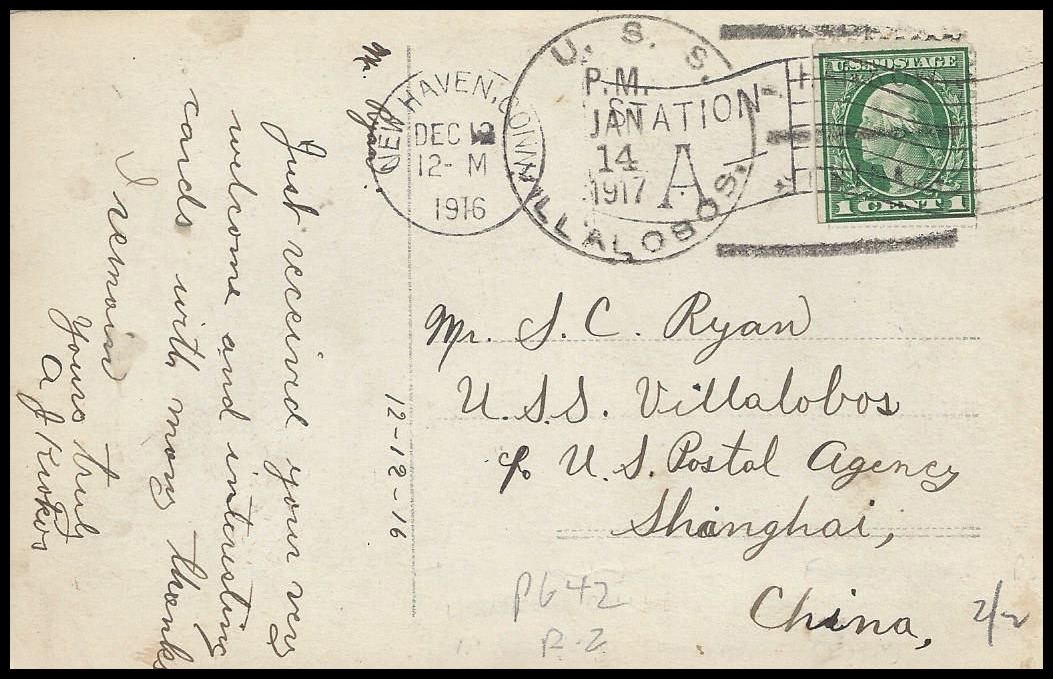 Mr. Ryan.
Just received your very
welcome and interesting
cards with many thanks
I remain
Yours truly
A J
12-12-16
NEW HAVEN, CONN.
DEC 12
12- M
1916
U. S. S.
P.M.
STATION
JAN
14
A
1917
VILLALOBOS.
U.S. POSTAGE
1 CENT 1
Mr. S. C. Ryan
U.S.S. Villalobos
c/o U.S. Postal Agency
Shanghai,
China,
P642
P-2
2/2